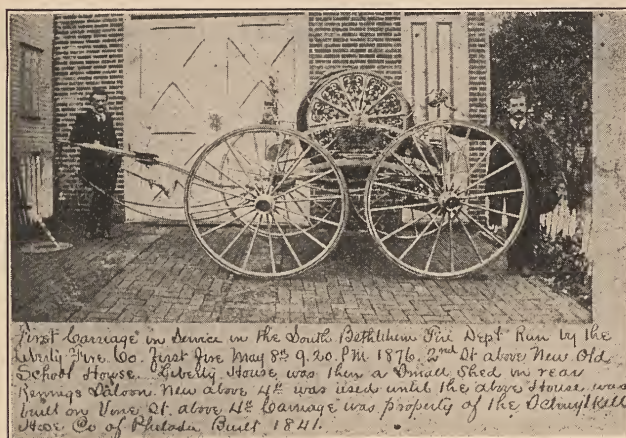 First Carriage in Service in the South Bethlehem Fire Dept Run by the
Liberty Fire Co. First Fire May 8th 9.20. P.M. 1876. 2nd St above New Old
School House. Liberty House was then a Small Shed in rear
Saloon New above 4th was used until the above House was
built on Vine St. above 4th Carriage was property of the Schuylkill
Hose Co of Philada Built 1841.